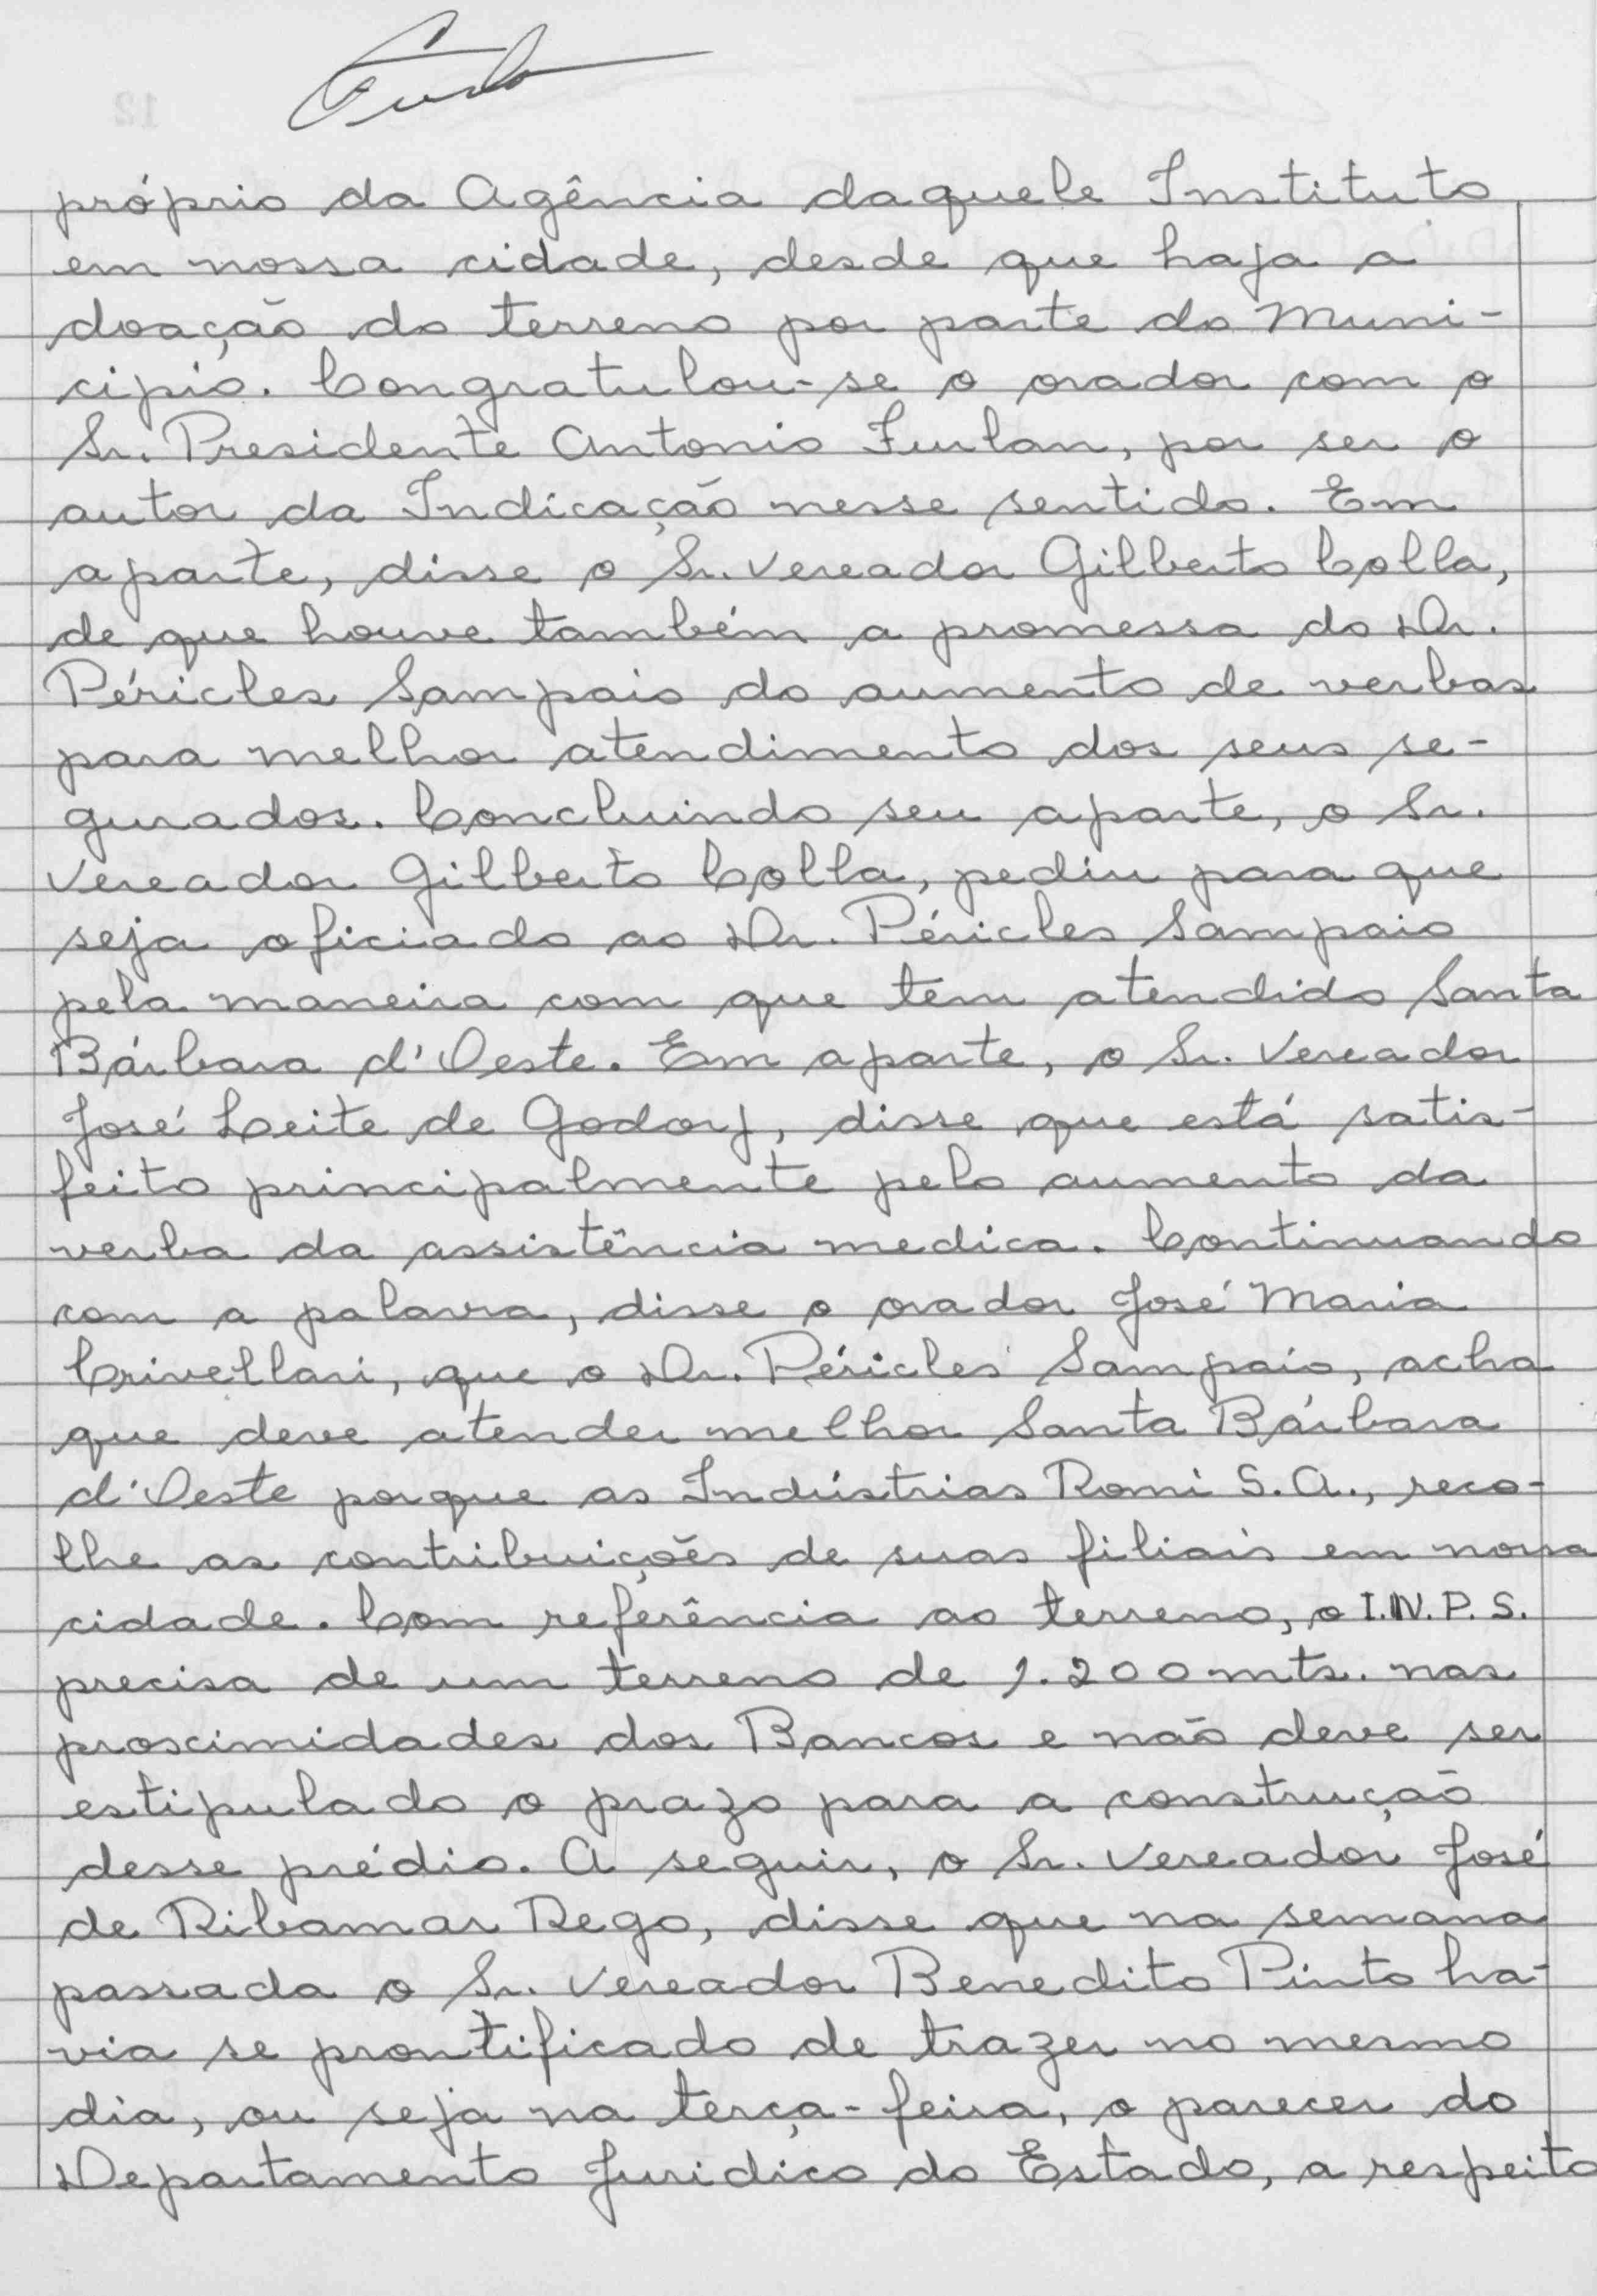 próprio da Agência daquele Instituto
em nossa cidade, desde que haja a
doação do terreno por parte do Muni-
cipio. Congratulou-se o orador com o
Sr. Presidente Antonio Furlan, por ser o
autor da Indicação nesse sentido. Em
aparte, disse o Sr. Vereador Gilberto Colla,
de que houve também a promessa do Dr.
Péricles Sampaio do aumento de verbas
para melhor atendimento dos seus se-
gurados. Concluindo seu aparte, o Sr.
Vereador Gilberto Colla, pediu para que
seja oficiado ao Dr. Péricles Sampaio
pela maneira com que tem atendido Santa
Bárbara d'Oeste. Em aparte, o Sr. Vereador
José Leite de Godoy, disse que está satis-
feito principalmente pelo aumento da
verba da assistência medica. Continuando
com a palavra, disse o orador José Maria
Crivellari, que o Dr. Péricles Sampaio, acha
que deve atender melhor Santa Bárbara
d'Oeste porque as Indústrias Romi S.A., reco-
lhe as contribuições de suas filiais em nossa
cidade. Com referência ao terreno, o I.N.P.S.
precisa de um terreno de 1.200 mts. nas
proximidades dos Bancos e não deve ser
estipulado o prazo para a construção
desse prédio. A seguir, o Sr. Vereador José
de Ribamar Rego, disse que na semana
passada o Sr. Vereador Benedito Pinto ha-
via se prontificado de trazer no mesmo
dia, ou seja na terça-feira, o parecer do
Departamento Juridico do Estado, a respeito